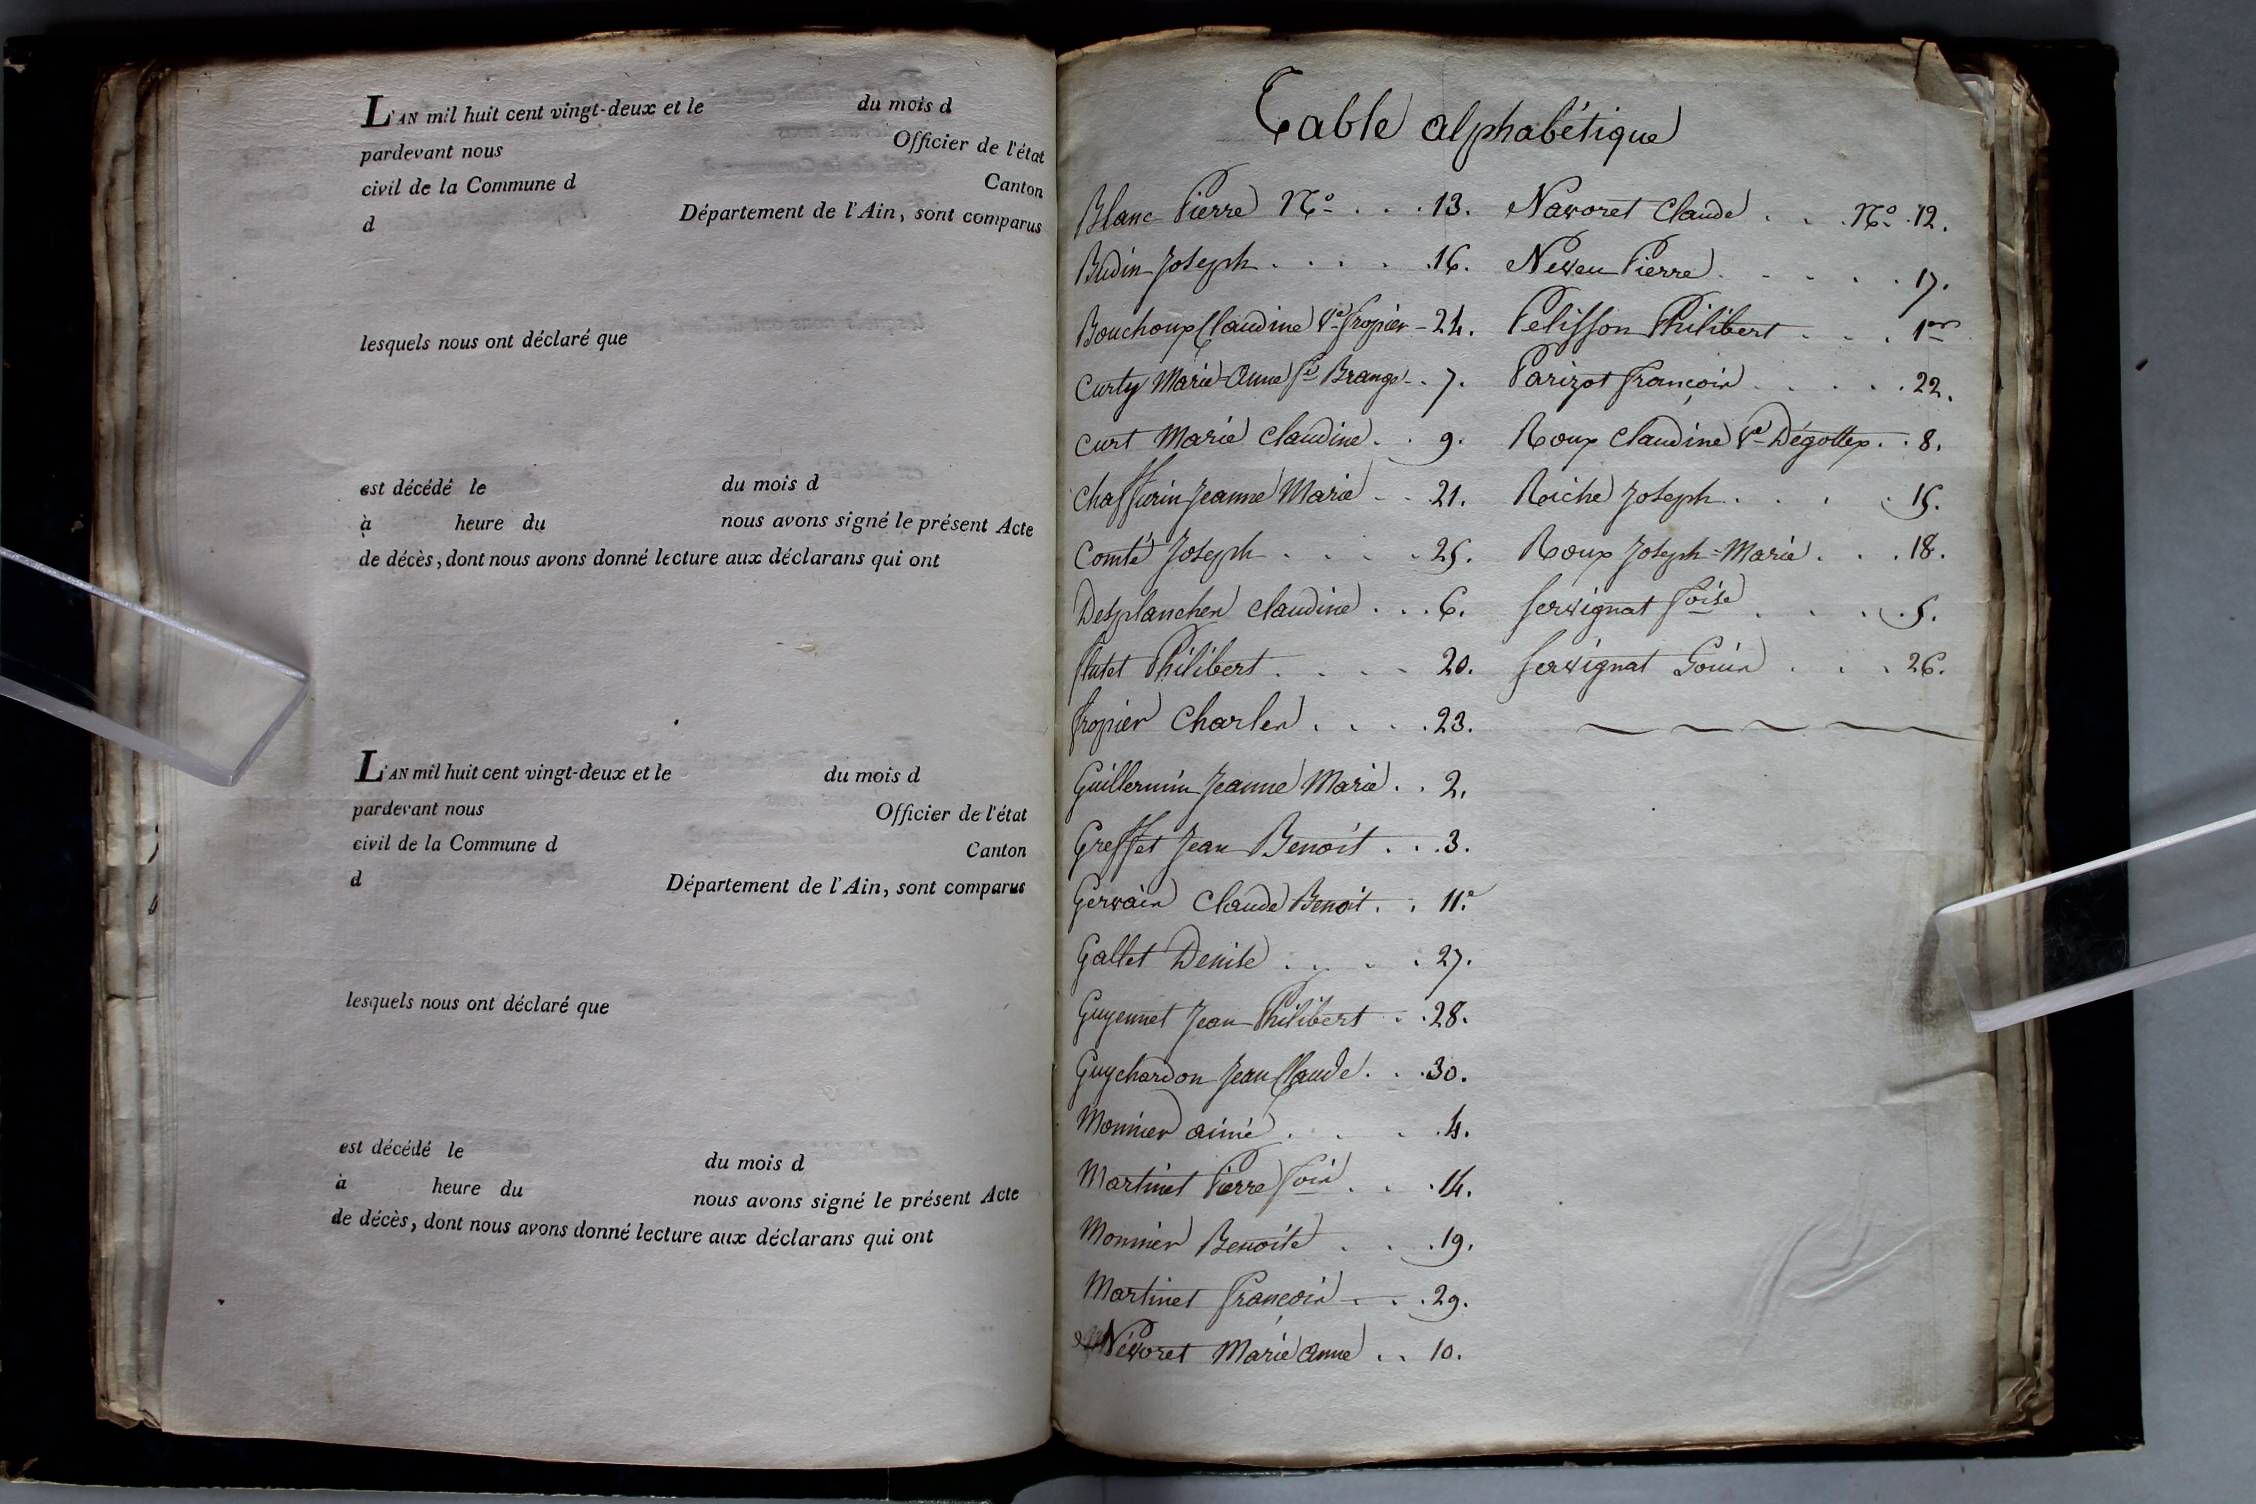 L'AN mil huit cent vingt-deux et le du mois d
pardevant nous Officier de l'état
civil de la Commune d Canton
d Département de l'Ain, sont comparus
lesquels nous ont déclaré que
est décédé le du mois d
à heure du nous avons signé le présent Acte
de décès, dont nous avons donné lecture aux déclarans qui ont
L'AN mil huit cent vingt-deux et le du mois d
pardevant nous Officier de l'état
civil de la Commune d Canton
d Département de l'Ain, sont comparus
lesquels nous ont déclaré que
est décédé le du mois d
à heure du nous avons signé le présent Acte
de décès, dont nous avons donné lecture aux déclarans qui ont
Table alphabétique
Blanc Pierre No . . . 13.
Budin Joseph . . . . 16.
Bouchoux Claudine Ve Fropier - 24.
Curty Marie Anne Fe Brange . . 7.
Curt Marie Claudine . . 9.
Chaffurin Jeanne Marie . . 21.
Comte Joseph . . . . 25.
Desplanches Claudine . . . 6.
Flutet Philibert . . . . 20.
Fropier Charles . . . . 23.
Guillermin Jeanne Marie . . 2.
Greffet Jean Benoit . . . 3.
Gervais Claude Benoit . . 11.
Gallet Denise . . . . 27.
Guyennet Jean Philibert . . 28.
Guychardon Jean Claude . . . 30.
Monnier aimé . . . . 4.
Martinet Pierre fois . . . 14.
Monnier Benoite . . . 19.
Martinet François . . . 29.
Névoret Marie Anne . . 10.
Navoret Claude . . . No . 12.
Neveu Pierre . . . . . 17.
Pelisson Philibert . . . 1er
Parizot François . . . . . 22.
Roux Claudine Ve Dégottex . . 8.
Riche Joseph . . . . 15.
Roux Joseph=Marie . . . 18.
Servignat foise . . . . 5.
Servignat Louis . . . 26.